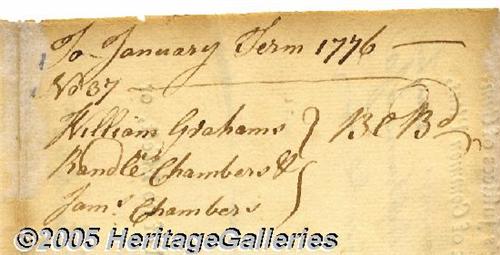 To January Term 1776
No 37
William Grahams
Randle Chambers &
Jams Chambers
©2005 HeritageGalleries